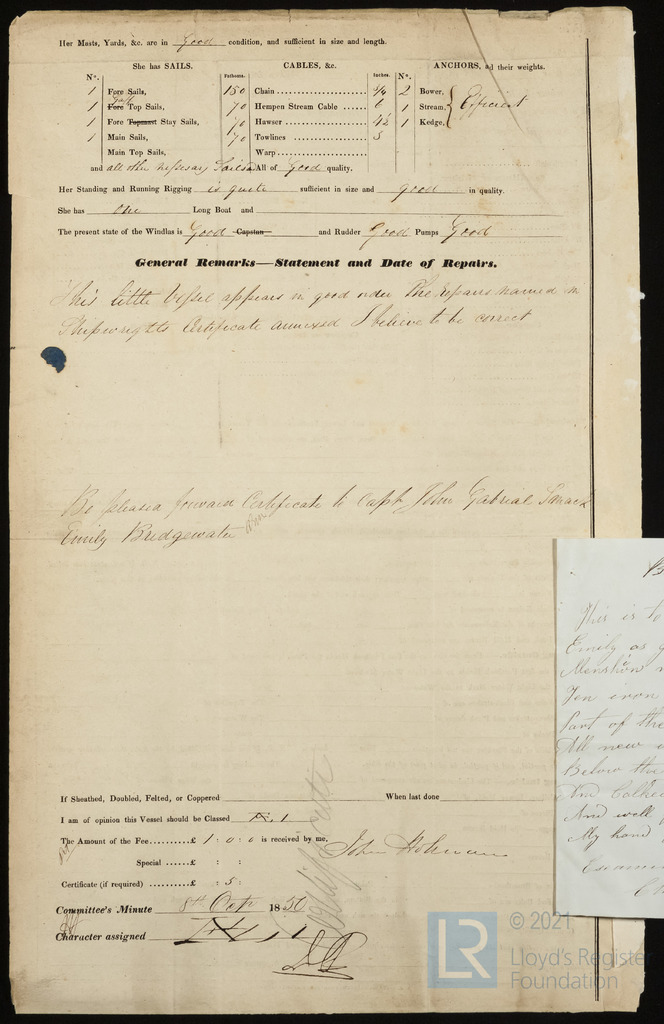 Her Masts, Yards, &c. are in Good condition, and sufficient in size and length.
She has SAILS.
CABLES, &c.
ANCHORS, and their weights.
N°.
Fathoms.
Inches.
N°.
1 Fore Sails, 150 Chain 2 Bower,
1 Fore Gaff Top Sails, 70 Hempen Stream Cable 6 1 Stream, Efficient
1 Fore Topmast Stay Sails, 70 Hawser 4½ 1 Kedge,
1 Main Sails, 70 Towlines 3
Main Top Sails, Warp
and all other necessary Sails All of Good quality.
Her Standing and Running Rigging is quite sufficient in size and good in quality.
She has One Long Boat and
The present state of the Windlas is Good Capstan and Rudder Good Pumps Good
General Remarks—Statement and Date of Repairs.
This little Vessel appears in good order The repairs named in
Shipwrights Certificate annexed I believe to be correct
Be pleased forward Certificate to Capt John Gabrial Smack
Emily Bridgewater
B
This is to
Emily as
Ten iron
Part of the
All new
Below the
And Calked
And well
My hand
If Sheathed, Doubled, Felted, or Coppered When last done
I am of opinion this Vessel should be Classed
The Amount of the Fee £ 1 : 0 : 0 is received by me, John Holman
Special £ : :
Certificate (if required) £ : 5 :
Certificate
Committee's Minute 8th Octr 1850
Character assigned
LR
© 2021,
Lloyd's Register
Foundation